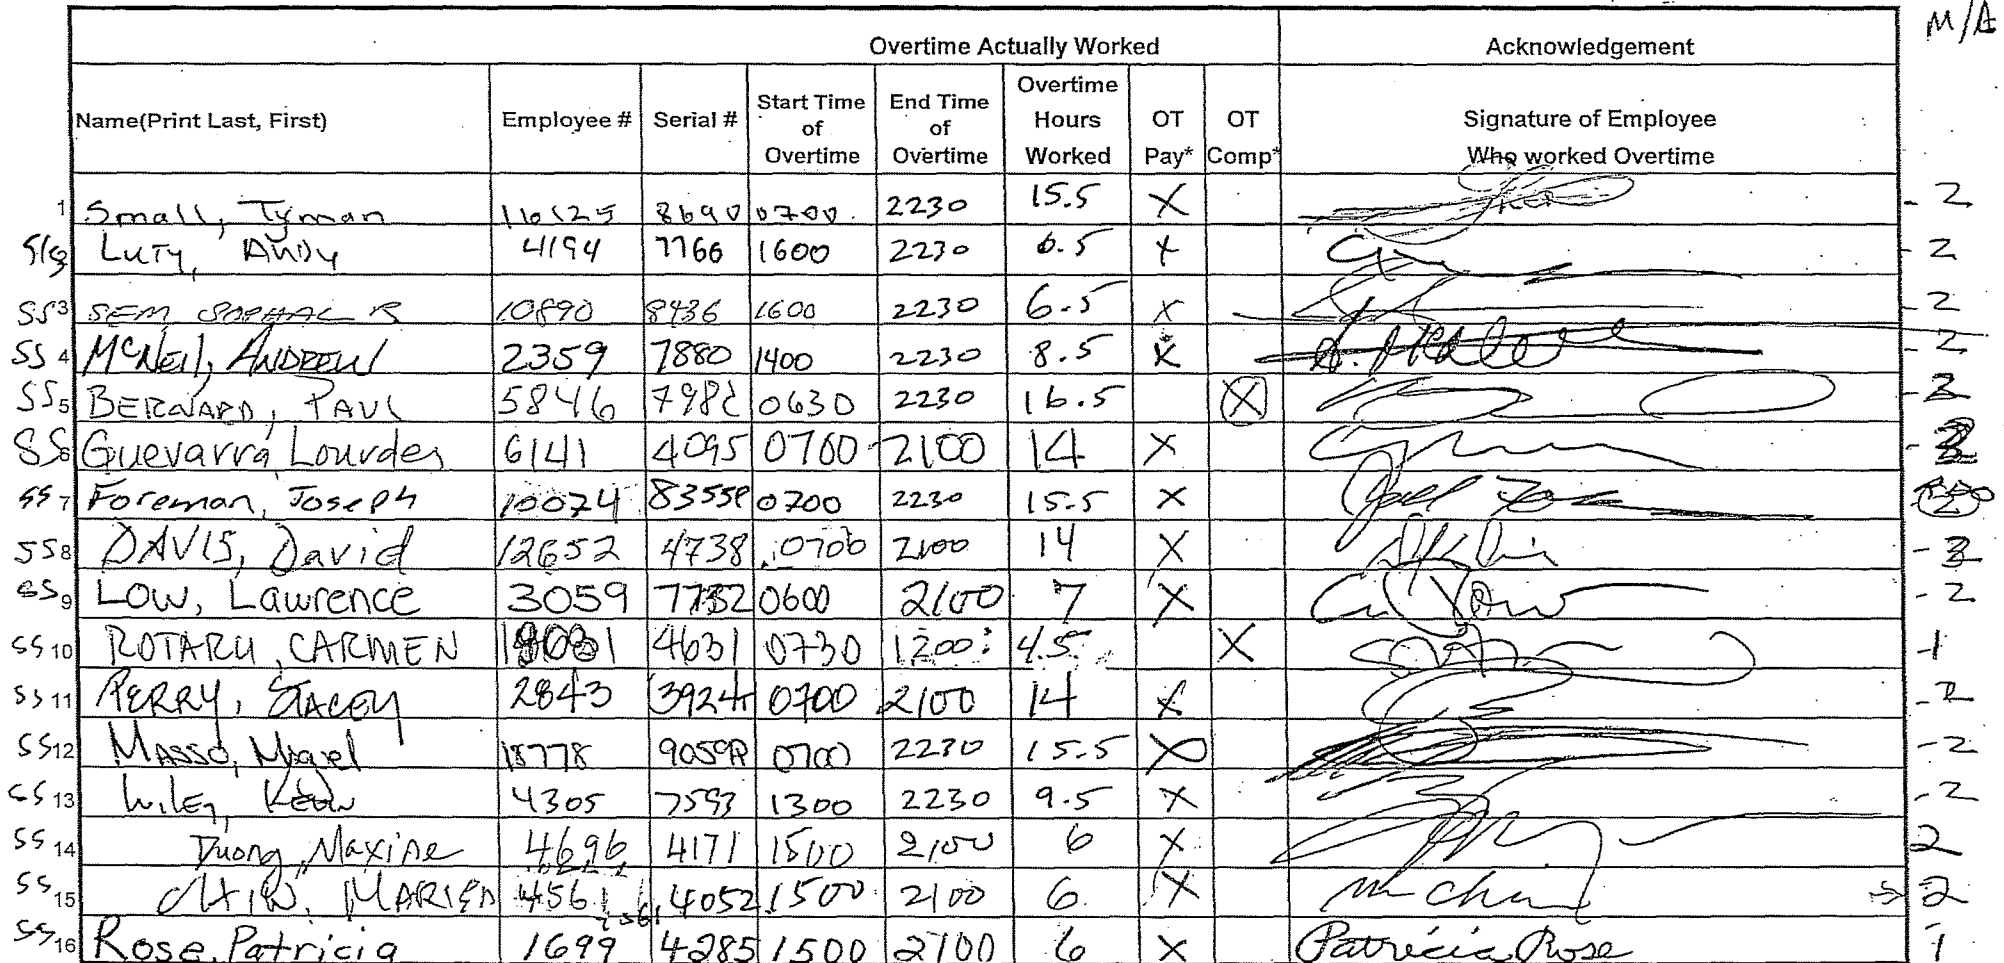 M/A
Overtime Actually Worked Acknowledgement
Name(Print Last, First) Employee # Serial # Start Time of Overtime End Time of Overtime Overtime Hours Worked OT Pay* OT Comp* Signature of Employee Who worked Overtime
1 Small, Tyman 8690 0700 2230 15.5 X - 2
Luty, Andy 4194 7766 1600 2230 6.5 X - 2
SS 3 SEM SOPHAL R 10890 8436 1600 2230 6.5 X - 2
SS 4 McNeil, ANDREW 2359 7880 1400 2230 8.5 X - 2
SS 5 BERNARD, PAUL 5846 0630 2230 16.5 X
SS 6 Guevarra, Lourdes 6141 4095 0700 2100 14 X
SS 7 Foreman, Joseph 10074 8355P 0700 2230 15.5 X
SS 8 DAVIS, David 12652 4738 0700 2100 14 X
SS 9 Low, Lawrence 3059 7732 0600 2100 7 X - 2
SS 10 ROTARU, CARMEN 4631 0730 1200 4.5 X - 1
SS 11 PERRY, STACEY 2843 3924 0700 2100 14 X - 2
SS 12 Masso, Miguel 9059P 0700 2230 15.5 X - 2
SS 13 Wiley, Kevin 4305 7593 1300 2230 9.5 X - 2
SS 14 Duong, Maxine 4696 4171 1500 2100 6 X 2
SS 15 MARIEN 4561 4052 1500 2100 6 X 2
SS 16 Rose, Patricia 1699 4285 1500 2100 6 X Patricia Rose 1